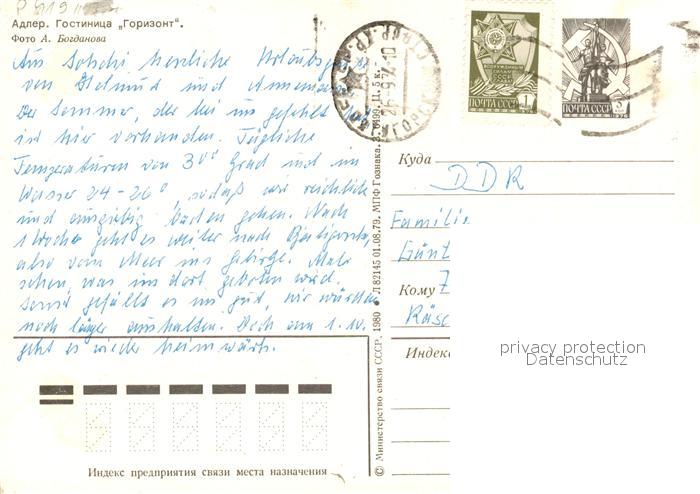 Адлер. Гостиница „Горизонт".
Фото А. Богданова
Aus Sotschi herzliche Urlaubsgrüße
von Helmut und Annemarie
Der Sommer, der bei uns gefehlt hat
ist hier vorhanden. Tägliche
Temperaturen von 30° Grad und im
Wasser 24-26°, sodaß wir reichlich
und ausgiebig baden gehen. Nach
1 Woche geht es weiter nach
also vom Meer ins Gebirge. Mal
sehen, was uns dort geboten wird.
Sonst gefällt es uns gut, wir würden
noch länger aushalten. Doch am 1.10.
geht es wieder heimwärts.
Индекс предприятия связи места назначения
© Министерство связи СССР. 1980
Л 82145 01.08.79. МПФ Гознака.
ПОЧТА СССР 1
ПОЧТА СССР 3
1976
Куда
DDR
Familie
Günt
Кому
Räsc
Индекс
privacy protection
Datenschutz